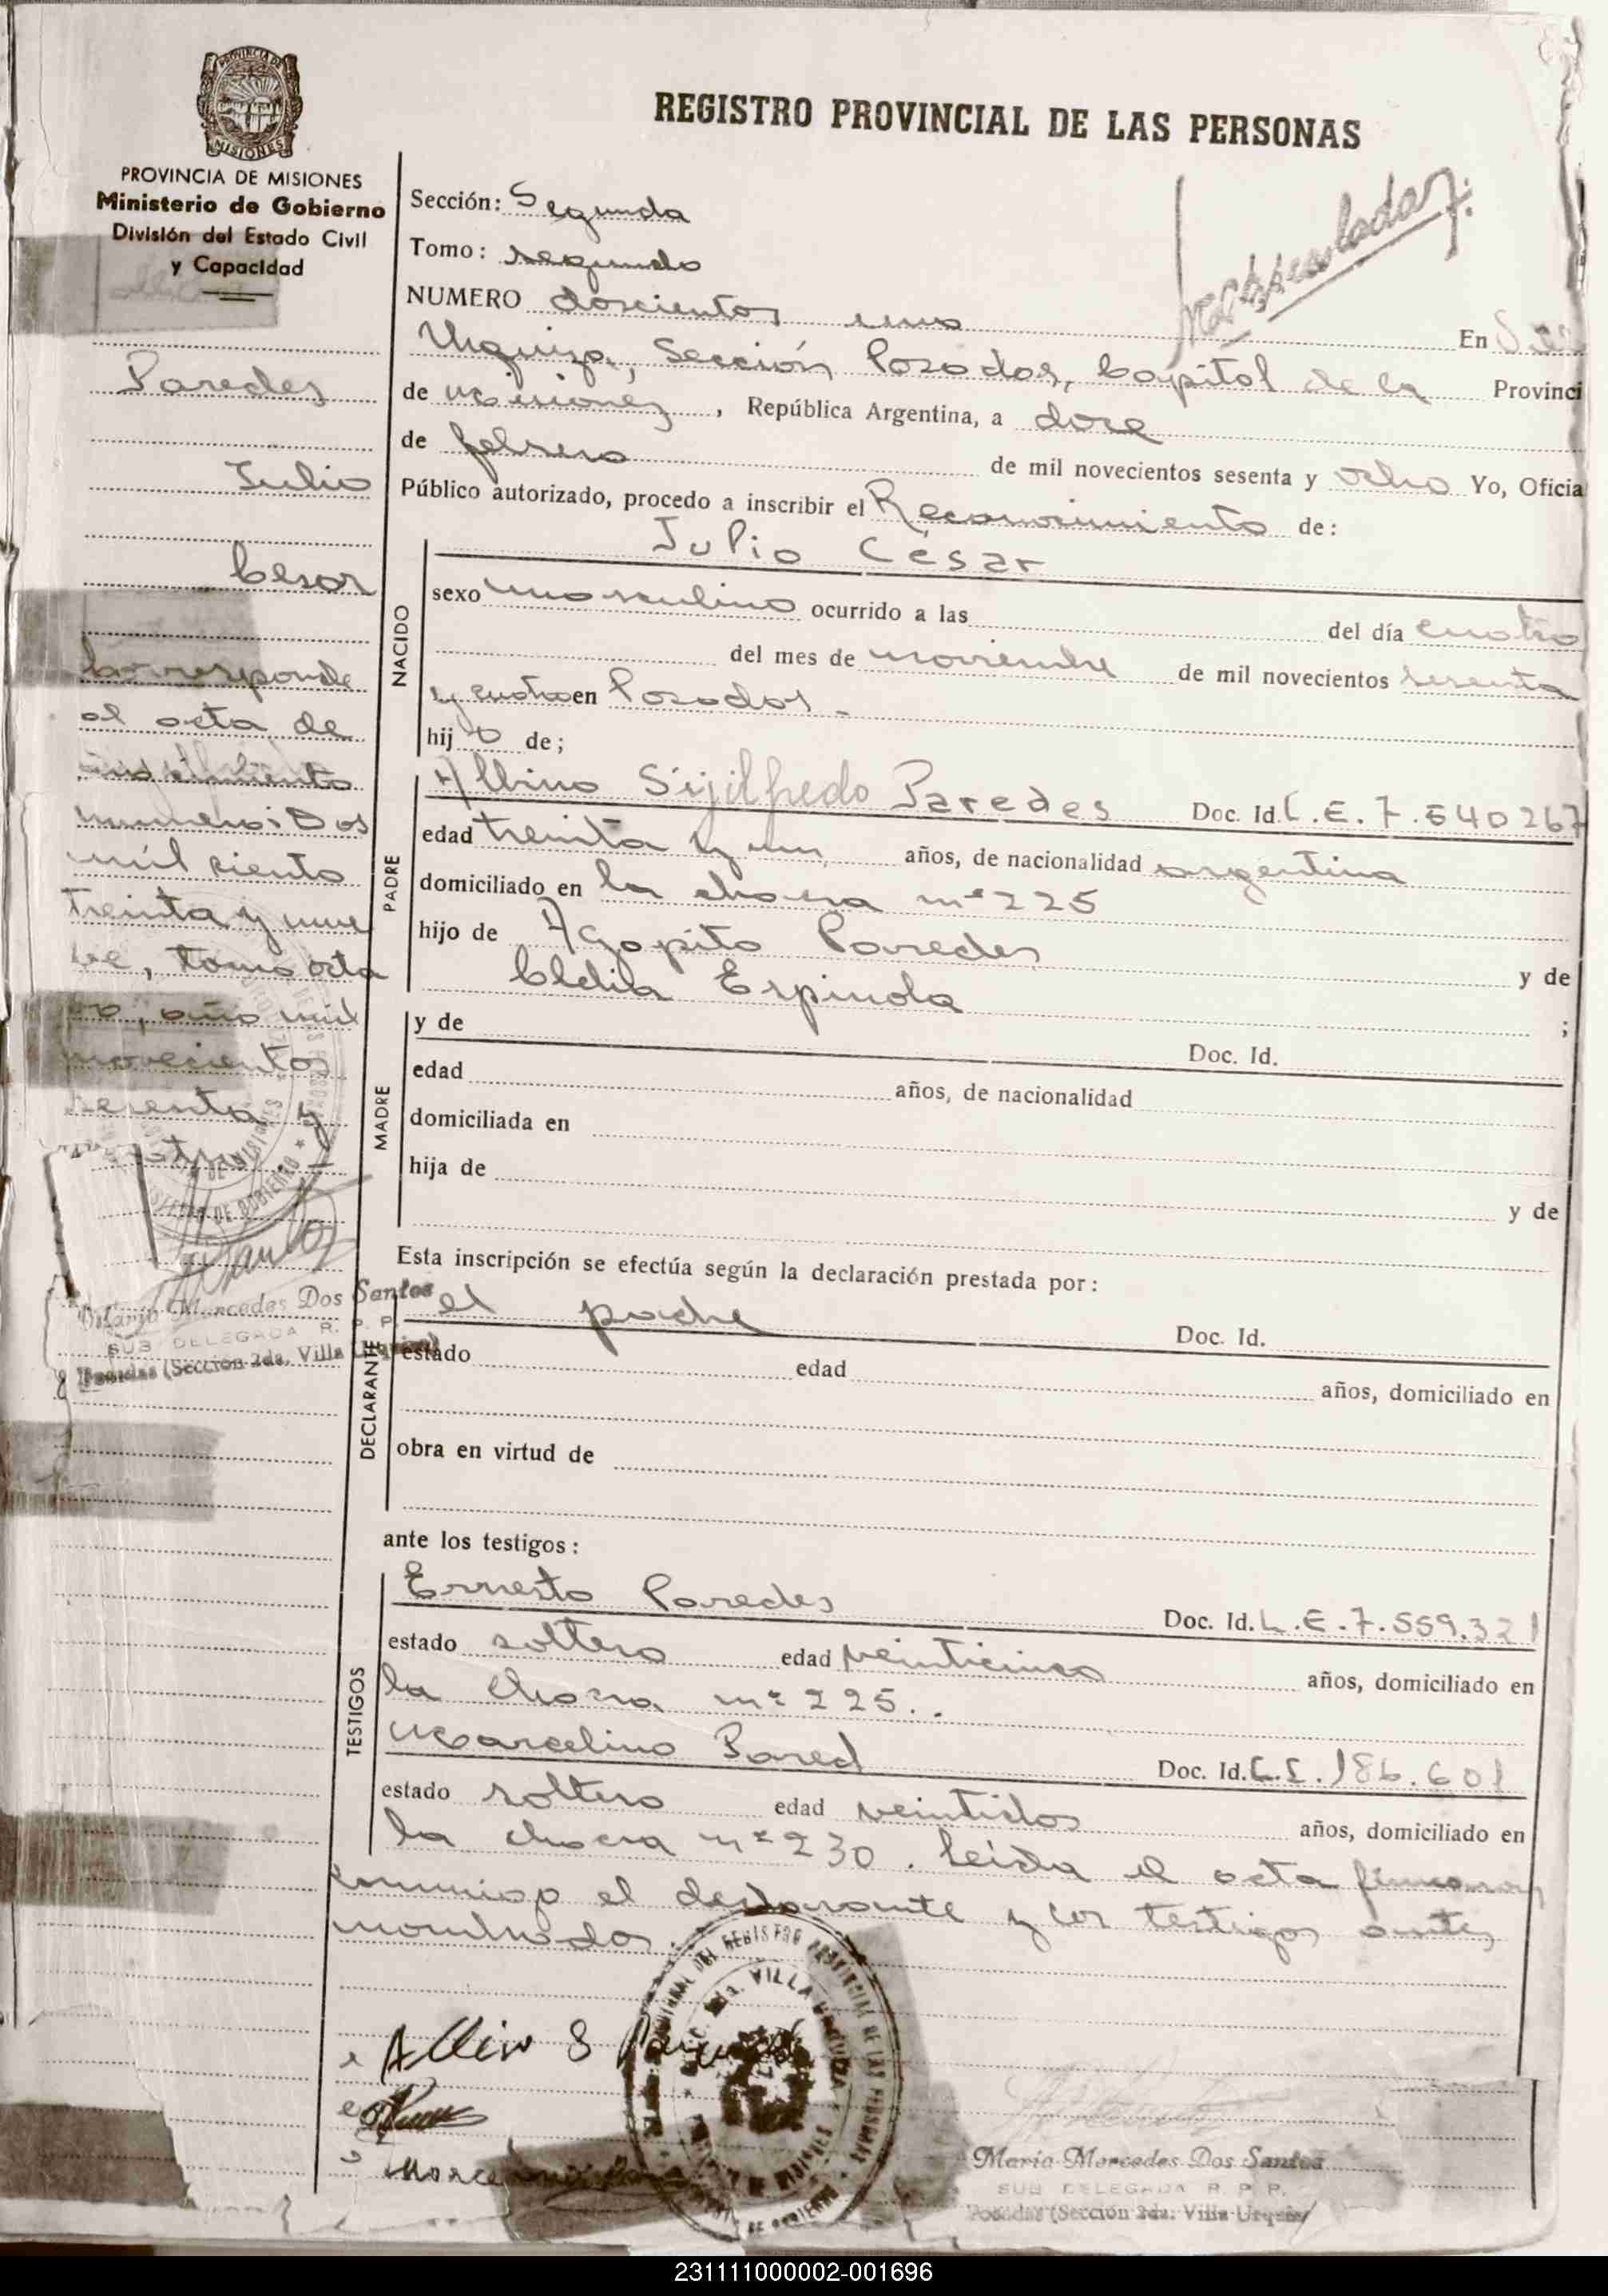 REGISTRO PROVINCIAL DE LAS PERSONAS
PROVINCIA DE MISIONES
Ministerio de Gobierno
División del Estado Civil
y Capacidad
Paredes
Julio
Cesar
Corresponde
al acta de
numero: Dos
mil ciento
treinta y nue
ve, tomo octa
vo, año mil
novecientos
sesenta y
cuatro
Maria Mercedes Dos Santos
SUB DELEGADA R. P. P.
Posadas (Sección 2da. Villa Urquiza)
Sección: Segunda
Tomo: segundo
NUMERO doscientos uno En
Urquiza, Sección Posadas, Capital de la Provinci
de Misiones, República Argentina, a doce
de febrero de mil novecientos sesenta y ocho Yo, Oficia
Público autorizado, procedo a inscribir el Reconocimiento de:
NACIDO
Julio César
sexo masculino ocurrido a las del día cuatro
del mes de noviembre de mil novecientos sesenta
y cuatro en Posadas.
hijo de;
PADRE
Albino Sijilfredo Paredes Doc. Id. L.E. 7.540267
edad treinta y un años, de nacionalidad argentina
domiciliado en la chacra nº 225
hijo de Agapito Paredes y de
Clelia Espinola ;
MADRE
y de Doc. Id.
edad años, de nacionalidad
domiciliada en
hija de y de
Esta inscripción se efectúa según la declaración prestada por:
DECLARANTE
el padre Doc. Id.
estado edad años, domiciliado en
obra en virtud de
ante los testigos:
TESTIGOS
Ernesto Paredes Doc. Id. L.E.7.559.321
estado soltero edad veinticinco años, domiciliado en
la chacra nº 225..
Marcelino Pared Doc. Id. C.I. 186.601
estado soltero edad veintidos años, domiciliado en
la chacra nº 230. Leida el acta firmaron
conmigo el declarante y los testigos antes
nombrados.
Albino S Paredes
Maria Mercedes Dos Santos
SUB DELEGADA R. P. P.
Posadas (Sección 2da. Villa Urquiza)
231111000002-001696